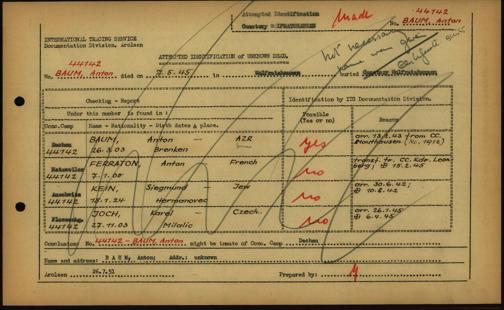 Attempted Identification
Cemetery WOLFRATSHAUSEN
Made
44142
No. BAUM, Anton
INTERNATIONAL TRACING SERVICE
Documentation Division, Arolsen
ATTEMPTED IDENTIFICATION of UNKNOWN DEAD.
not necessary
name was given
44142
No. BAUM, Anton died on 7.5.45 in Wolfratshausen buried Cemetery Wolfratshausen
Checking - Report
Identification by ITS Documentation Division.
Under this number is found in:
Possible (Yes or no)
Reason
Conc.Camp Name - Nationality - Birth dates & place.
Dachau 44142 BAUM, Anton - AZR 26.3.03 Brenken yes arr. 13.2.43 from CC. Mauthausen (No. 1912)
Natzweiler 44142 FERRATON, Anton French 7.1.00 no transf. to CC. Kdo. Leonberg; ⊕ 15.2.45
Auschwitz 44142 KEIN, Siegmund - Jew 15.1.24 Hermanovec no arr. 30.6.42;
Flossenbg. 44142 JOCH, Karel - Czech. 27.11.03 Milalic no arr. 26.1.45 ⊕ 6.4.45
Conclusion: No. 44142 - BAUM, Anton might be inmate of Conc. Camp Dachau
Name and address: BAUM, Anton; Addr.: unknown
Arolsen 26.7.51 Prepared by: